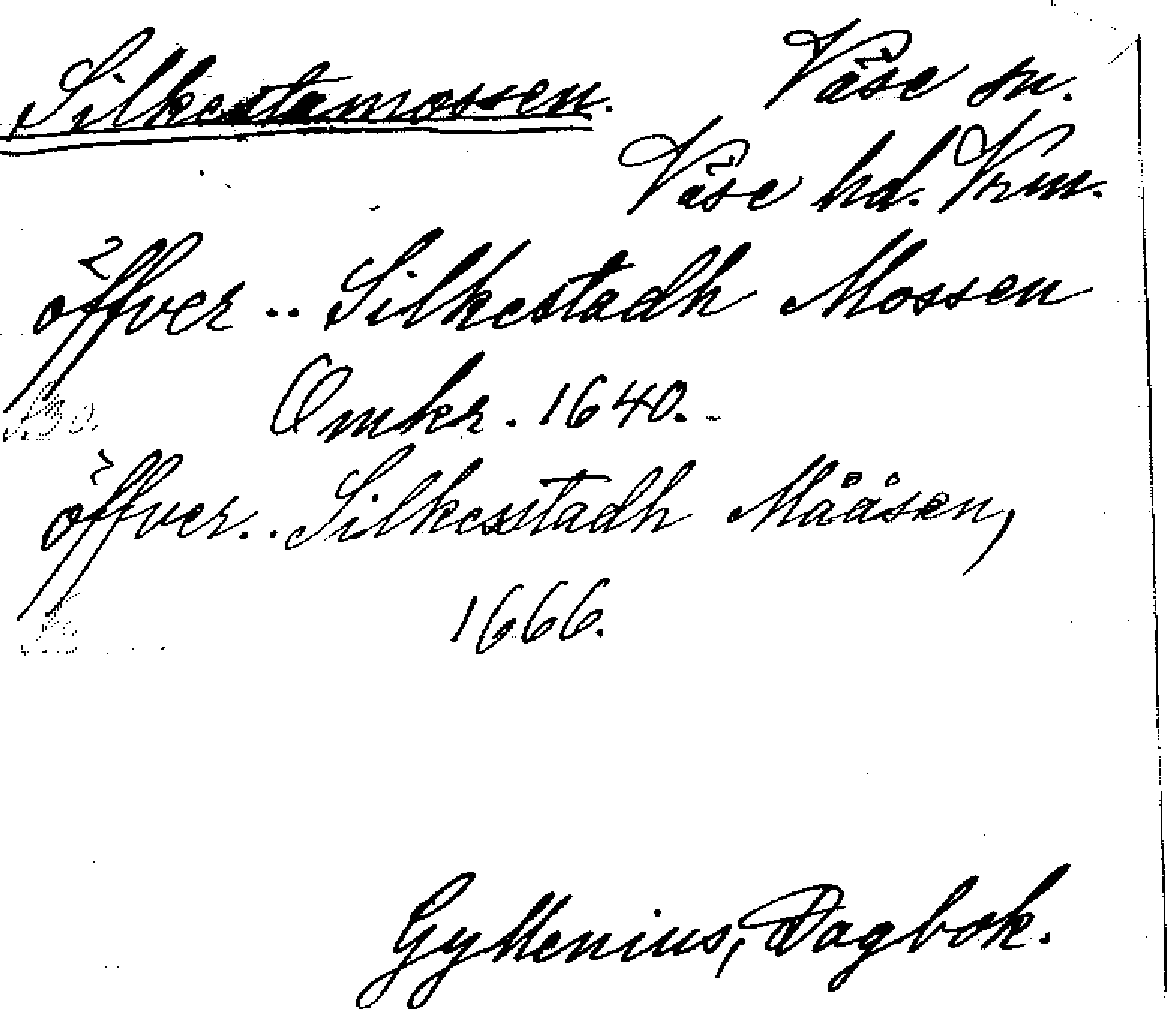 Silkestamossen. Väse sn.
Väse hd. Vrm.
öffver .. Silkestadh Mossen
Omkr. 1640.
öffver .. Silkesstadh Mååsen,
1666.
Gyllenius, Dagbok.